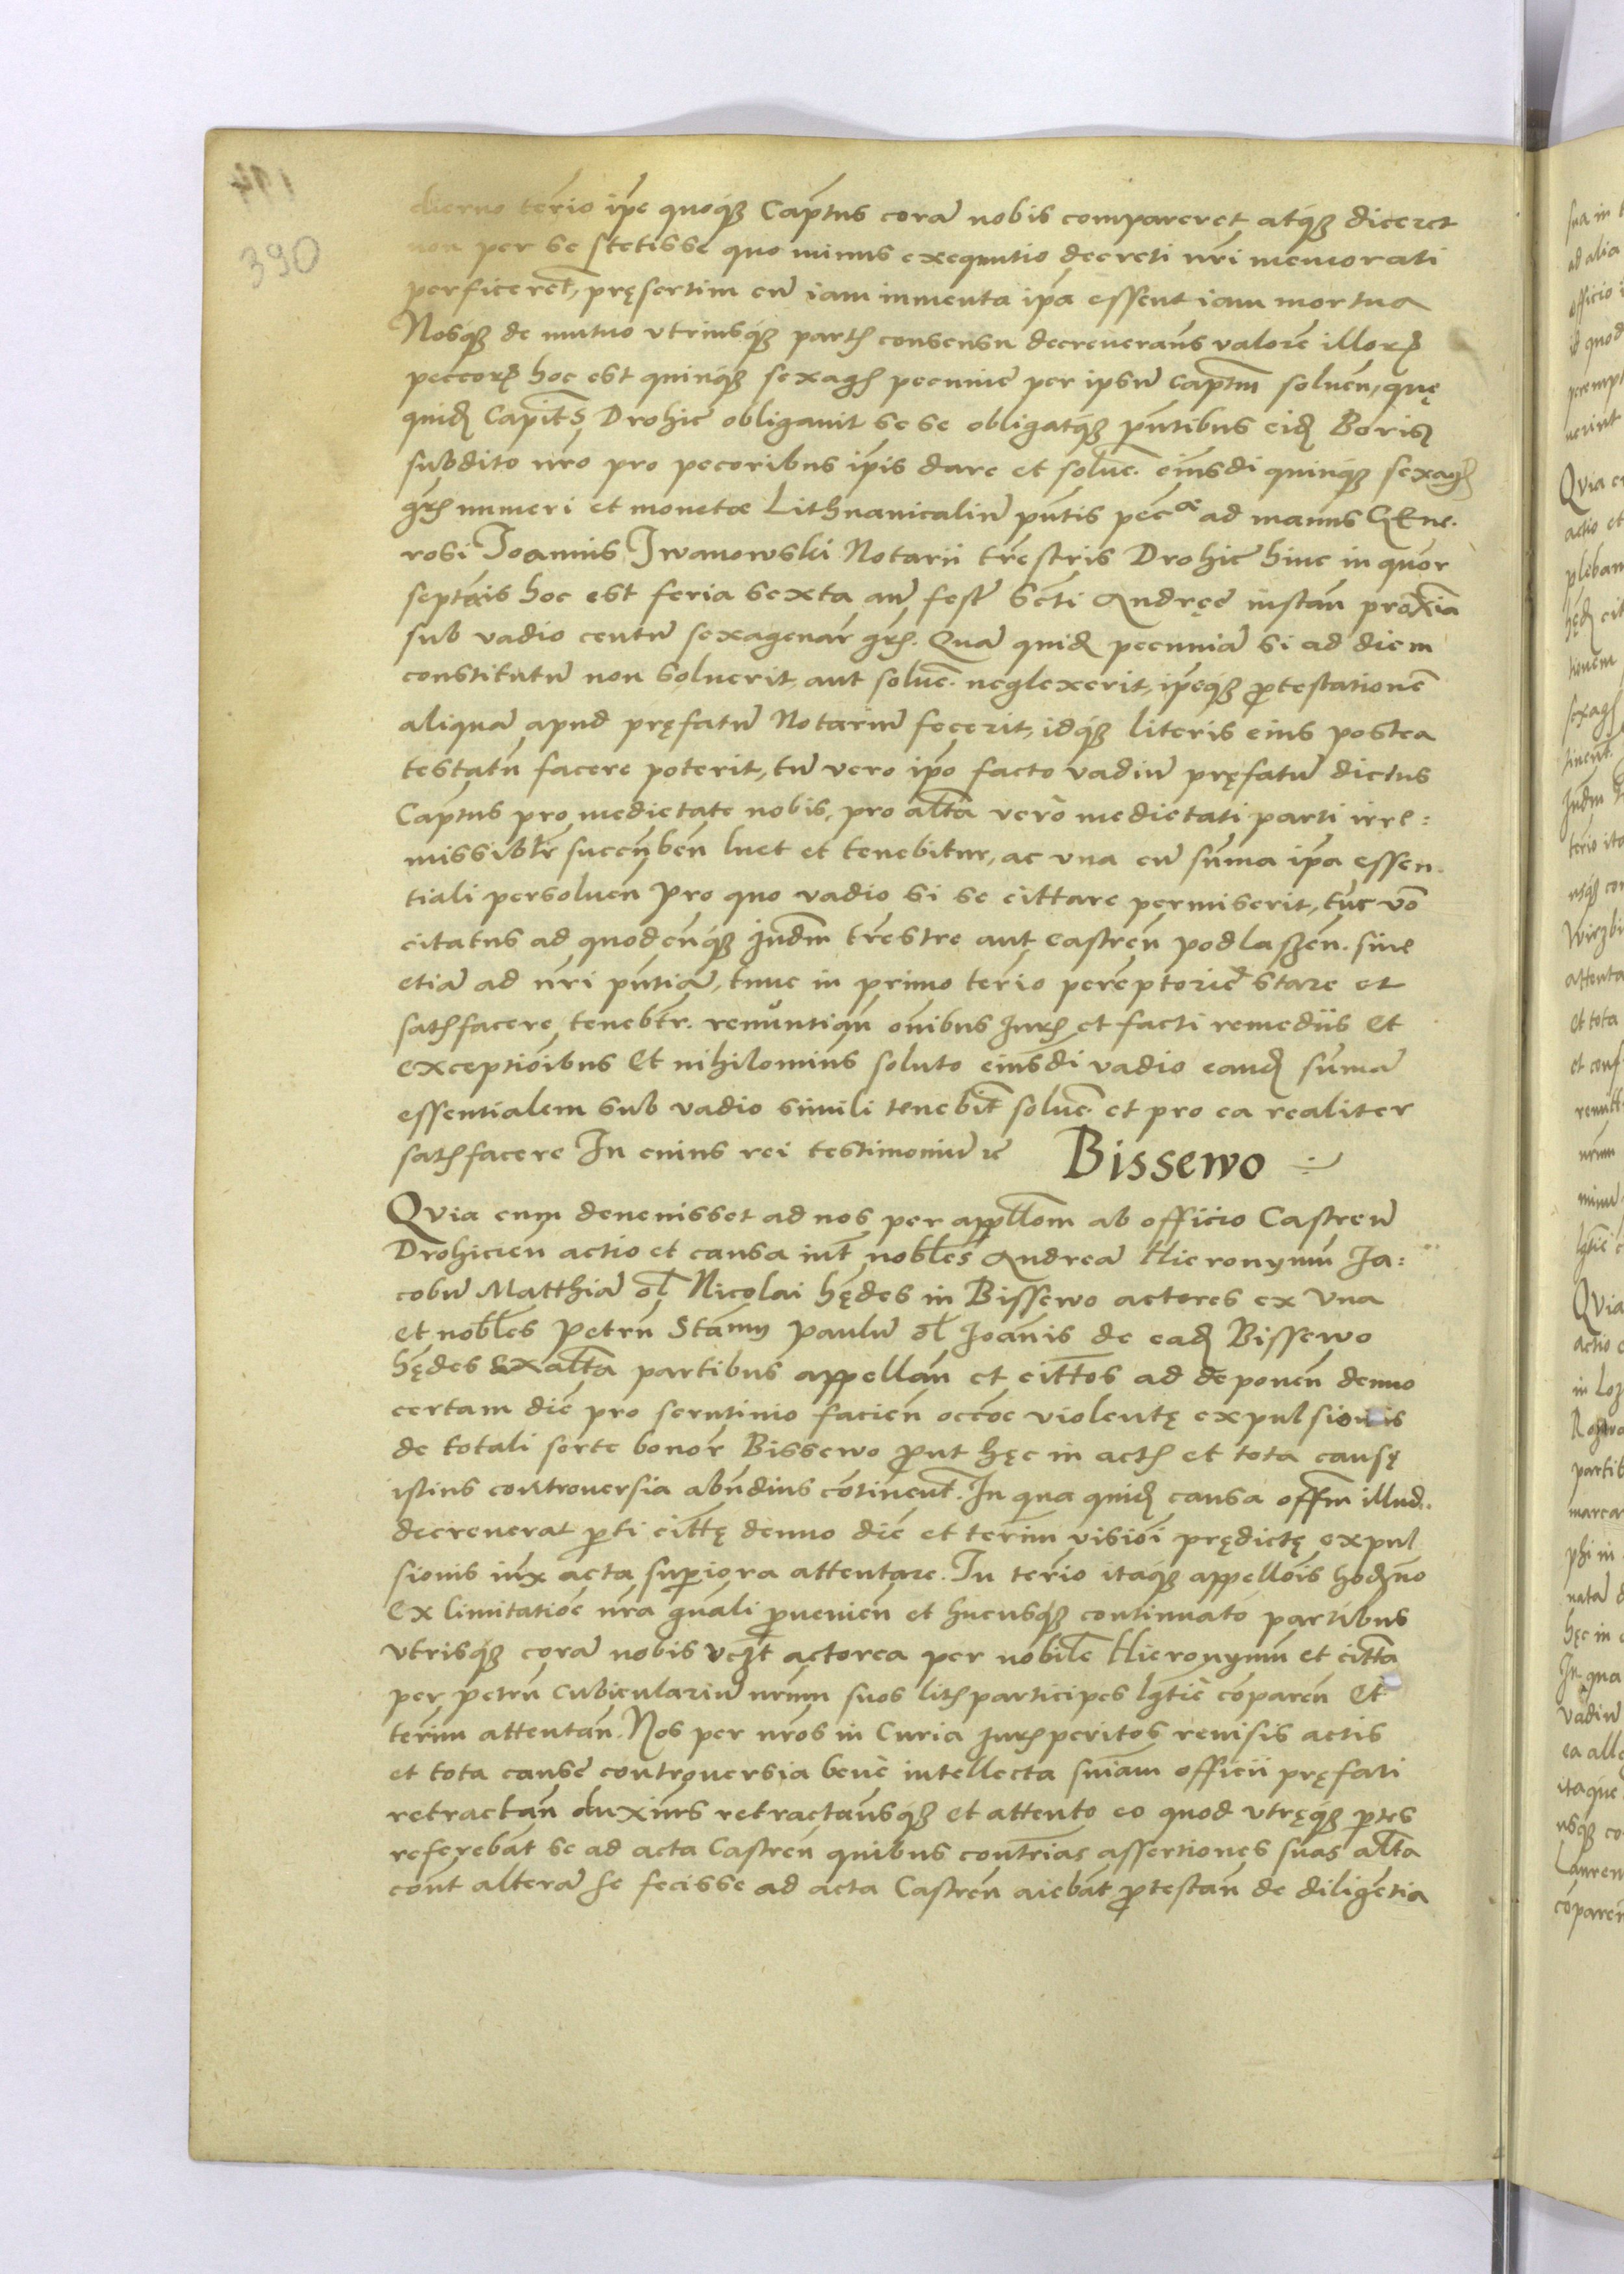 390
dierno terĩo ip̃e quoq́ꝫ Cap̃tus corã nobis compareret atq́ꝫ diceret
non per se stetisse quo minus exequutio decreti nr̃i memorati
perficeret̃, pręsertim cũ iam iumenta ip̃a essent iam mortua
Nosq́ꝫ de mutuo vtriusq́ꝫ partꝭ consensu decreueramꝰ valorẽ illorꝫ
peccorꝫ hoc est quinq́ꝫ sexagꝭ pecunie per ipsũ captm̃ soluen, quę
quidꝫ Capit̃s Drohic̃ obligauit se se obligatq́ꝫ pñtibus eidꝫ Borisꝫ
subdito nr̃o pro pecoribus ip̃is dare et soluẽ. eiusdi quinq́ꝫ sexagꝭ
gr̃ꝭ numeri et monetæ Lithuanicaliũ pñtis pec̃ ad manus GEne.
rosi Joannis Jwanowski Notarii tr̃estris Drohic̃ hinc in quor
septĩs hoc est feria sexta añ fest̃ Sc̃ti Andręę instañ proxĩa
sub vadio centũ sexagenar̃ gr̃ꝭ. Quã quidꝫ pecuniã si ad diem
constitutũ non soluerit, aut soluẽ. neglexerit, ip̃eq́ꝫ ꝓtestationẽ
aliquã apud pręfatũ Notariũ fecerit, idq́ꝫ literis eius postea
testatũ facere poterit, tũ vero ip̃o facto vadiũ pręfatũ dictus
Cap̃tus pro medietate nobis, pro alt̃a verò medietati parti irre:
missiblr̃ succũbeñ luet et tenebitur, ac vna cũ sũma ip̃a essen.
tiali persoluen Pro quo vadio si se cittare permiserit, tũc vo
citatus ad quodcũq́ꝫ Judm̃ tr̃estre aut castreñ podlaszeñ. siue
etiã ad nr̃i pñtiã, tunc in primo terĩo perẽptoriẽ stare et
satꝭfacere tenebt̃r. renuntiañ oñibus Jurꝭ et facti remediis et
exceptioĩbus Et nihilominus soluto eiusdi vadio eandꝫ sũmã
essentialem sub vadio simili tenebit̃ soluẽ. et pro ea realiter
satꝭfacere In cuius rei testimoniũ ꝛc̃ Bissewo
Qvia cum deuenisset ad nos per appllõm ab officio Castreñ
Drohicieñ actio et causa int̃ nobl̃es Andreã Hieronymũ Ja:
cobũ Matthiã ol̃ Nicolai hęd̃es in Bissewo actores ex vna
et nobl̃es Petrũ Stãum̃ Paulũ ol̃ Joãnis de eadꝫ Bissewo
hęd̃es ex alt̃a partibus appellañ et citt̃os ad deponeñ denuo
certam diẽ pro scrutinio facieñ occõe violentę expulsionis
de totali sorte bonor̃ Bissewo ꝓut hęc in actꝭ et tota causę
istius controuersia abũdius cõtinent̃. In qua quidꝫ causa offm̃ illud.
decreuerat pti citt̃ę denuo diẽ et term̃ visiõi prędictę expul
sionis iux̃ acta superiora attentare. In terĩo itaq́ꝫ appellõis hodꝫno
Ex limitatioẽ nr̃a gñali ꝓuenieñ et hucusq́ꝫ continuato partibus
vtrisq́ꝫ corã nobis vcꝫt̃ actorea per nobilẽ Hieronymũ et citt̃a
per Petrũ Cubiculariũ nr̃um suos litꝭ participes lg̃tiẽ cõpareñ Et
term̃ attentañ. Nos per nr̃os in Curia Jurꝭperitos reuisis actis
et tota causę controuersia benè intellecta sñiam officii pręfati
retractañ duxim̃s retractamusq́ꝫ et attento eo quod vtręq́ꝫ ptes
referebãt se ad acta Castreñ quibus contr̃ias assertiones suas alt̃a
cont̃ alterã se fecisse ad acta Castreñ aiebãt ꝓtestañ de diligẽtia